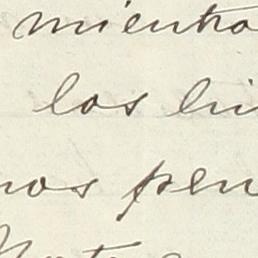 mientra
los li
nos pen